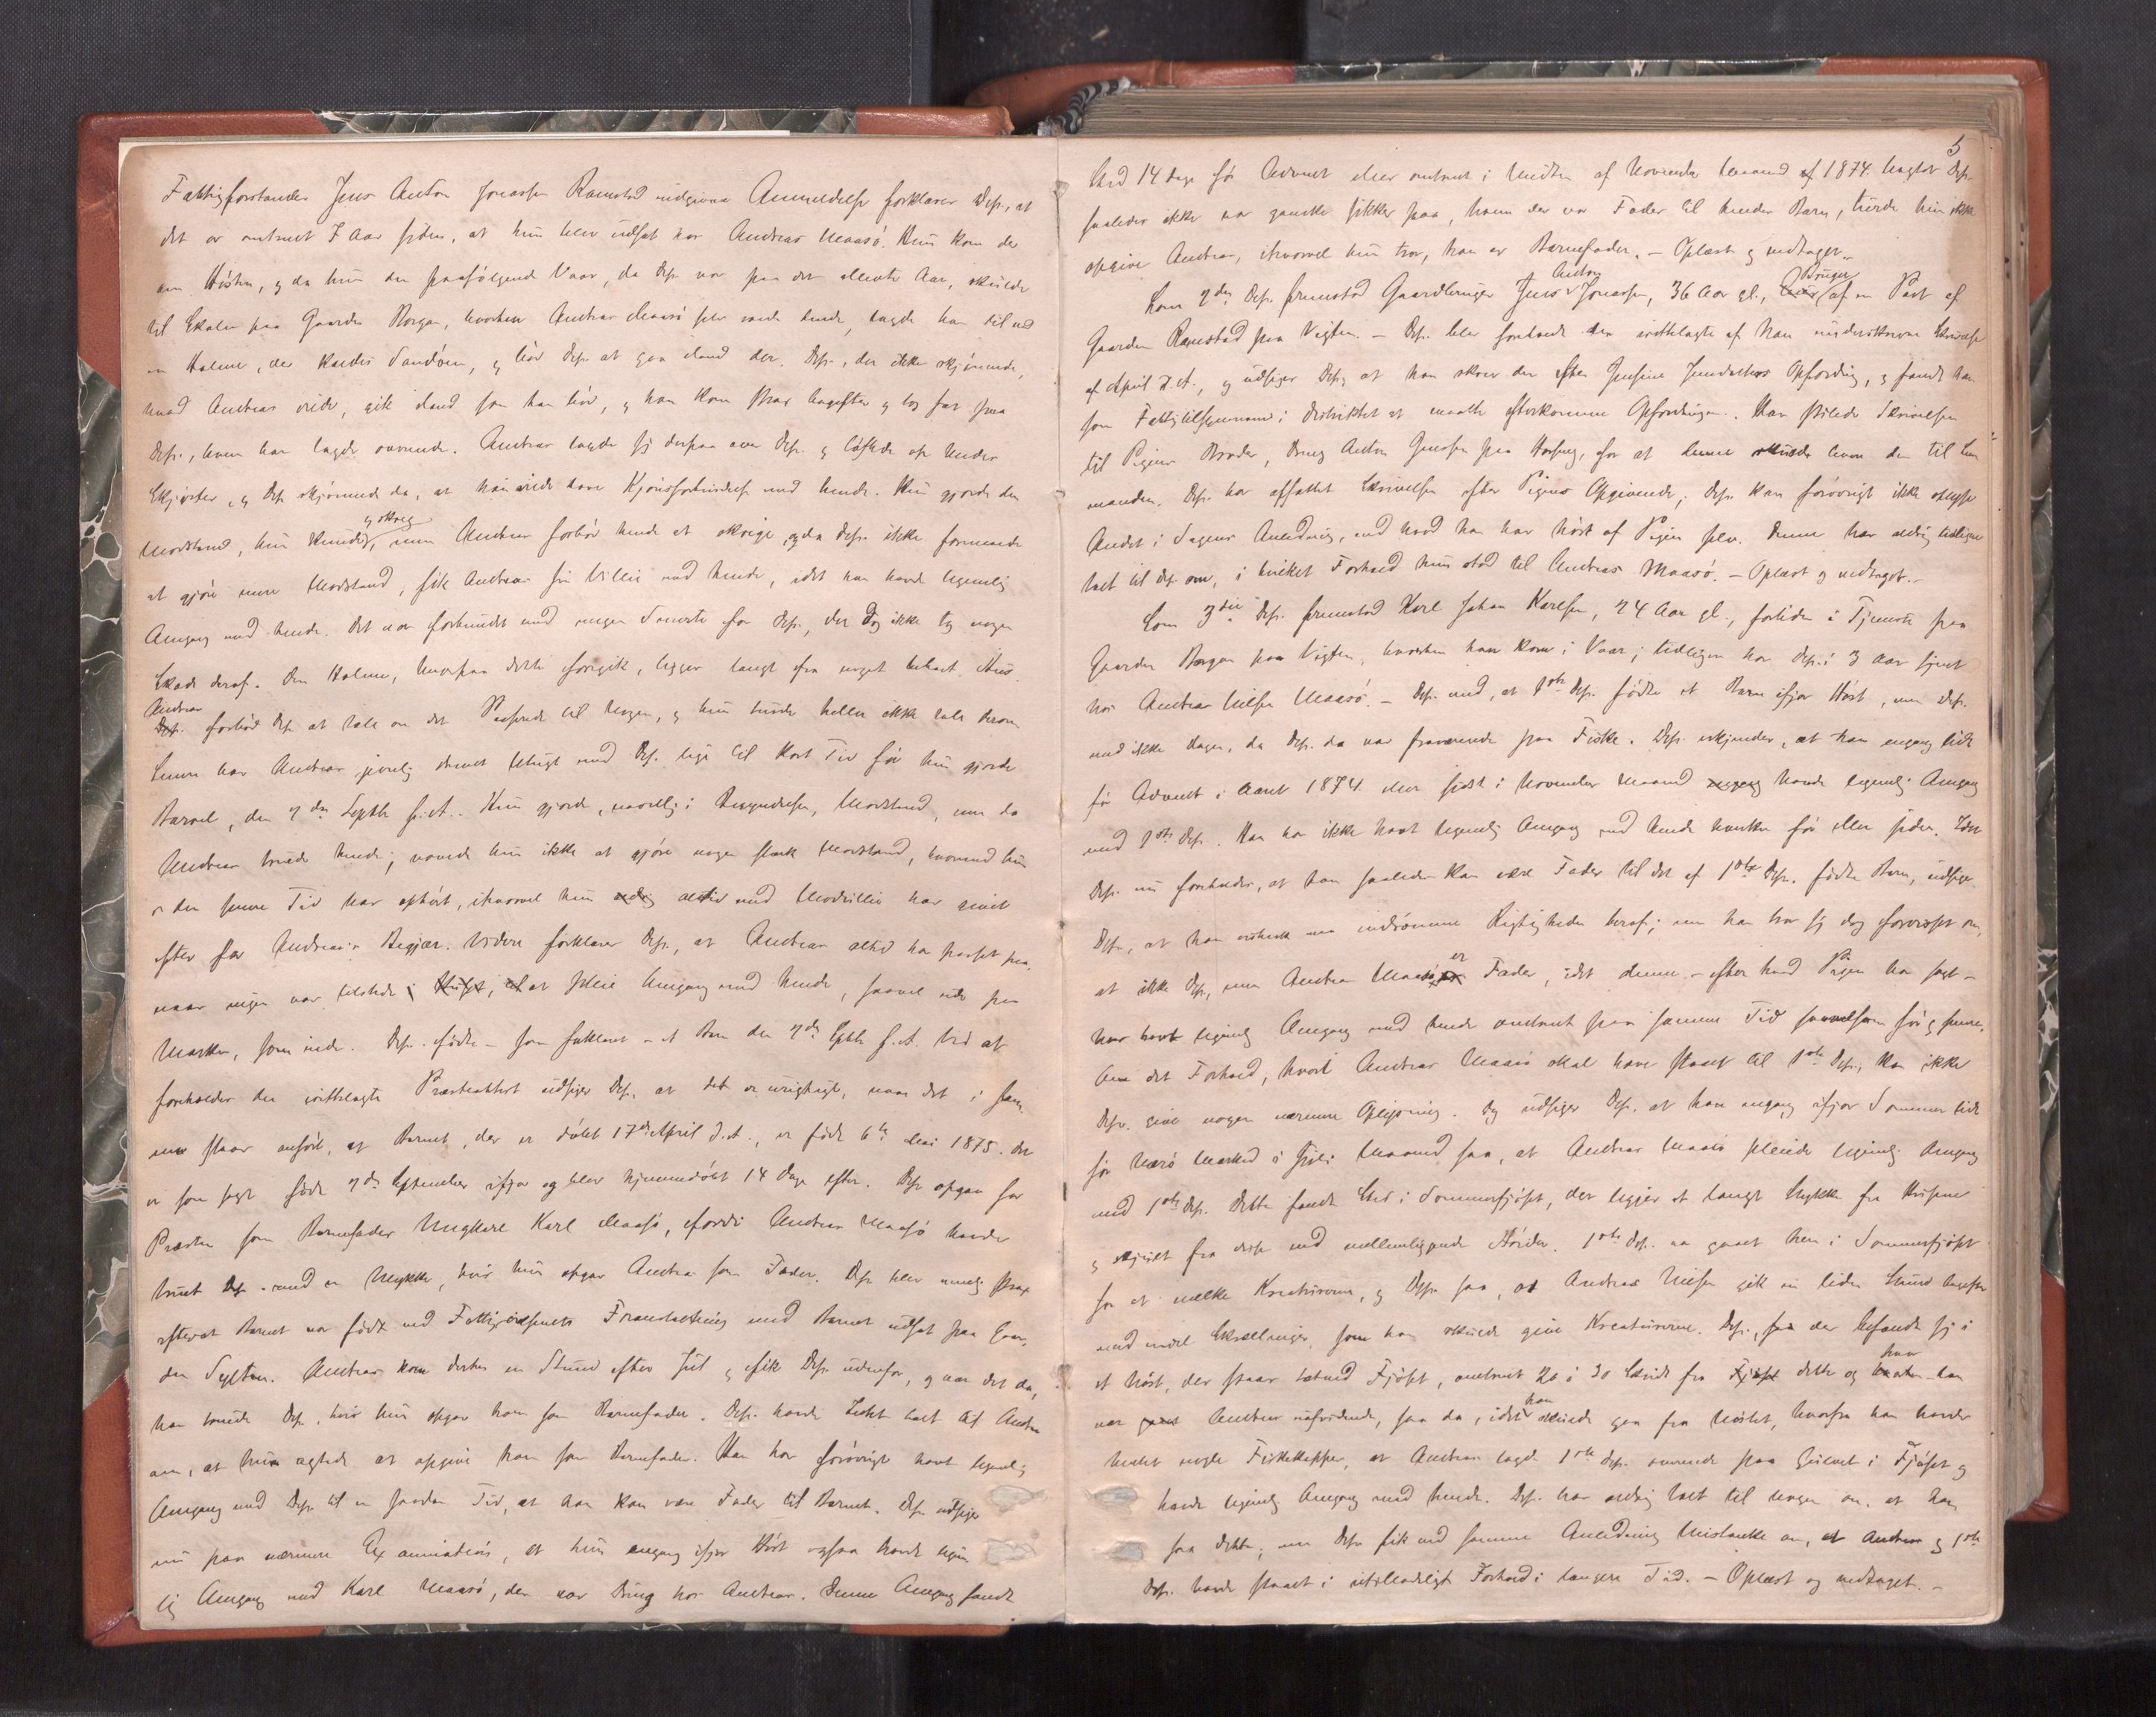 Fattigforstander Jens Anton Jonassen Ramstad indgivne Anmeldelse forklarer Dep., at
det er omtrent 7 Aar siden, at hun blev udsat hos Andreas Maasö. Hun kom der
om Hösten, og da hun den paafölgende Vaar, da Dep. var paa det ellevte Aar, skulde
til Skolen paa Gaarden Borgan, hvorhen Andreas Maasö selv roede hende, lagde han til ved
en Holme, der kaldes Sandöen, og böd Dep. at gaa iland der. Dep., der ikke skjönnede,
hvad Andreas vilde, gik iland som han böd, og han kom strax bagefter og tog fat paa
Dep., hvem han lagde overende. Andreas lagde sig derpaa over Dep. og löftede op hendes
Skjörter, og Dep. skjönnede da, at han vilde have Kjönsforbindelse med hende. Hun gjorde den
Modstand, hun kunde, og skreg men Andreas forböd hende at skrige, og da Dep. ikke formaaede
at gjöre mere Modstand, fik Andreas sin Villie med hende, idet han havde legemlig
Omgang med hende. Det var forbundet med megen Smerte for Dep., der dog ikke tog nogen
Skade deraf. Den Holme, hvorpaa dette foregik, ligger langt fra noget beboet Hus.
Andreas
Dep. forböd Dep. at tale om det Passerede til Nogen, og hun turde heller ikke tale derom
Senere har Andreas jevnlig drevet Utugt med Dep. lige til kort Tid för hun gjorde
Barsel, den 7de Septbr f. A. Hun gjorde, navnlig i Begyndelsen, Modstand, men da
Andreas truede hende, vovede hun ikke at gjöre nogen stærk Modstand, hvormed hun
i den senere Tid har ophört, ihvorvel hun aldrig altid med Modvillie har givet
efter for Andreas's Begjær. Videre forklarer Dep., at Andreas altid har passet paa,
naar ingen var tilstede i Huset, at at pleie Omgang med hende, saavel ude paa
Marken, som inde. Dep. födte – som forklaret – et Barn den 7de Septbr f. A. Ved at
foreholdes den irettelagte Præsteattest udsiger Dep., at det er urigtigt, naar det i sam-
me staar anfört, at Barnet, der er döbt 17de April d. A., er födt 6te Mai 1875. Det
er som sagt födt 7de September ifjor og blev hjemmedöbt 14 Dage efter. Dep. opgav for
Præsten som Barnefader Ungkarl Karl Maasö, fordi Andreas Maasö havde
truet Dep. med en Ulykke, hvis hun opgav Andreas som Fader. Dep. blev nemlig strax
efterat Barnet var födt ved Fattigvæsenets Foranstaltning med Barnet udsat paa Gaar-
den Sylten. Andreas kom derhen en Stund efter Jul og fik Dep. udenfor, og var det da,
han truede Dep., hvis hun opgav ham som Barnefader. Dep. havde ladet talt til Andre
om, at hun agtede at opgive ham som Barnefader. Han har forövrigt havt legemlig
Omgang med Dep. til en saadan Tid, at han kan være Fader til Barnet. Dep. udsiger
nu paa nærmere Examination, at hun engang ifjor Höst ogsaa havde legem-
lig Omgang med Karl Maasö, der var Dreng hos Andreas. Denne Omgang fandt
5
Sted 14 Dage för Advent eller omtrent i Midten af November Maaned af 1874. Uagtet Dep.
saaledes ikke var ganske sikker paa, hvem der var Fader til hendes Barn, turde hun ikke
opgive Andreas, ihvorvel hun tror, han er Barnefader. – Oplæst og vedtaget.
Som 2det Dep. fremstod Gaardbruger Jens Anton Jonassen, 36 Aar gl., Bruger af en Part af
Gaarden Ramstad paa Vigten. – Dep. blev foreholdt den irettelagte af ham underskrevne Skrivelse
af April d. A., og udsiger Dep. at han skrev den efter Opfordring, og fandt han
som Fattigtilsynsmand i Distriktet at maatte efterkomme Opfordringen. Han stilede Skrivelsen
til Pigens Broder, Dreng Anton Jensen paa, for at denne skulde levere den til Lens-
manden. Dep. har affattet Skrivelsen efter Pigens Opgivende; Dep. kan forövrigt ikke oplyse
Andet i Sagens Anledning, end hvad han har hört af Pigen selv. Denne har aldrig tidligere
talt til Dep. om, i hvilket Forhold hun stod til Andreas Maasö. – Oplæst og vedtaget. –
Som 3die Dep. fremstod Karl Johan Karlsen, 24 Aar gl., fortiden i Tjeneste paa
Gaarden Borgan paa Vigten, hvorhen han kom i Vaar; tidligere har Dep. i 3 Aar tjent
hos Andreas Nilsen Maasö. – Dep. ved, at 1ste Dep. födte et Barn ifjor Höst, men Dep.
ved ikke Dagen, da Dep. da var fraværende paa Fiske. Dep. erkjender, at han engang lidt
för Advent i Aaret 1874 eller sidst i November Maaned engang havde legemlig Omgang
med 1ste Dep. Han har ikke havt legemlig Omgang med hende hverken för eller siden. Idet
Dep. nu foreholdes, at han saaledes kan være Fader til det af 1ste Dep. födte Barn, udsiger
Dep., at han vistnok maa indrömme Rigtigheden heraf; men han tror sig dog forvisset om,
at ikke Dep., men Andreas Maasö er Fader, idet denne – efter hvad Pigen har sagt –
har havt legemlig Omgang med hende omtrent paa samme Tid saavelsom för og senere.
Om det Forhold, hvori Andreas Maasö skal have staaet til 1ste Dep., kan ikke
Dep. give nogen nærmere Oplysning. Dog udsiger Dep. at han engang ifjor Sommer lidt
för Nærö Marked i Juli Maaned saa, at Andreas Maasö pleiede legemlig Omgang
med 1ste Dep. Dette fandt Sted i Sommerfjöset, der ligger et langt Stykke fra Husene
og skjult fra disse ved mellemliggende Höider. 1ste Dep. var gaaet hen i Sommerfjöset
for at melke Kreaturerne, og Dep. saa, at Andreas Nilsen gik en liden Stund bagefter
med endel Skrellinger, som han skulde give Kreaturerne. Dep., saa der befandt sig i
et Nöst, der staar ved Fjöset, omtrent 20 à 30 Skridt fra Fjöset dette og hvor han
var Andreas uafvidende, saa da, idet han skulde gaa fra Nöstet, hvorfra han havde
hentet nogle Fiskekopper, at Andreas lagde 1ste Dep. overende paa Gulvet i Fjöset og
havde legemlig Omgang med hende. Dep. har aldrig talt til Nogen om, at han
saa dette; men Dep. fik ved samme Anledning Mistanke om, at Andreas og 1ste
Dep. havde staaet i utilladeligt Forhold i længere Tid. – Oplæst og vedtaget. –